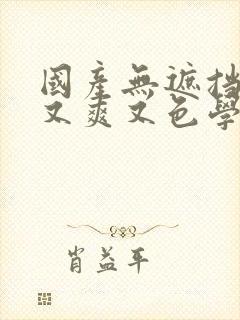 國產無遮挡
又爽又色學
肖益平